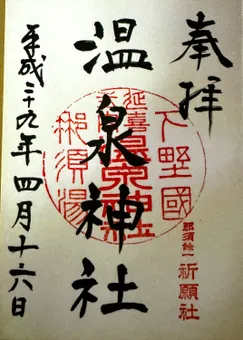 奉拝
下野國
延喜式内社
温泉神社
那須湯
那須余一
祈願社
平成二十九年四月十六日